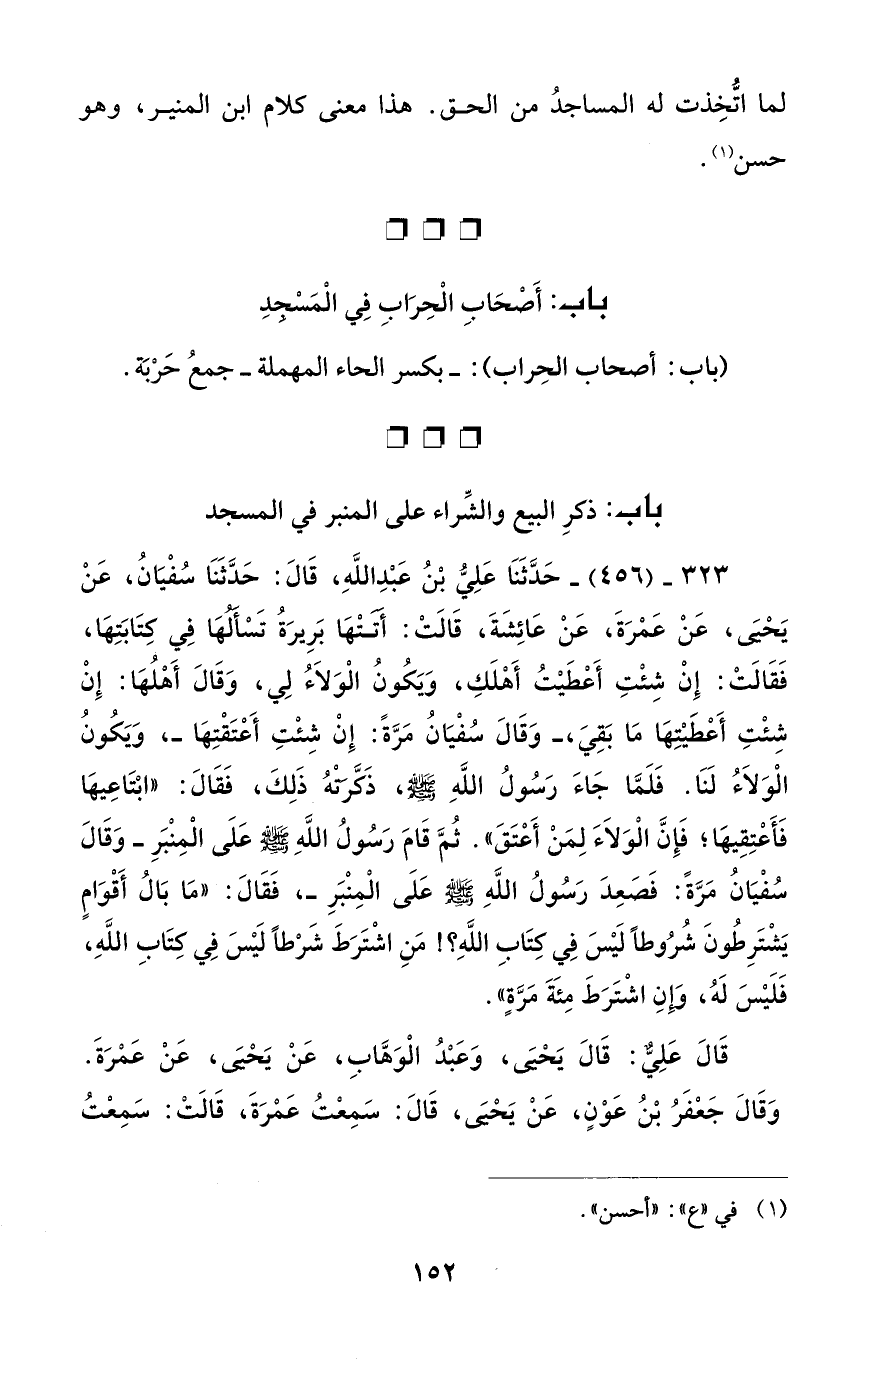 لما اتُّخِذت له المساجدُ من الحـق. هذا معنى كلام ابن المنيـر، وهو
حسن(١).
باب: أَصْحَابِ الْحِرَابِ فِي الْمَسْجِدِ
(باب: أصحاب الحِراب): ـ بكسر الحاء المهملة ـ جمعُ حَرْبَة.
باب: ذكرِ البيع والشِّراء على المنبر في المسجد
٣٢٣ ـ (٤٥٦) ـ حَدَّثَنَا عَلِيُّ بْنُ عَبْدِاللَّهِ، قَالَ: حَدَّثَنَا سُفْيَانُ، عَنْ
يَحْيَى، عَنْ عَمْرَةَ، عَنْ عَائِشَةَ، قَالَتْ: أَتَـتْهَا بَرِيرَةُ تَسْأَلُهَا فِي كِتَابَتِهَا،
فَقَالَتْ: إِنْ شِئْتِ أَعْطَيْتُ أَهْلَكِ، وَيَكُونُ الْوَلاَءُ لِي، وَقَالَ أَهْلُهَا: إِنْ
شِئْتِ أَعْطَيْتِهَا مَا بَقِيَ،ـ وَقَالَ سُفْيَانُ مَرَّةً: إِنْ شِئْتِ أَعْتَقْتِهَا ـ، وَيَكُونُ
الْوَلاَءُ لَنَا. فَلَمَّا جَاءَ رَسُولُ اللَّهِ ﷺ، ذَكَّرَتْهُ ذَلِكَ، فَقَالَ: «ابْتَاعِيهَا
فَأَعْتِقِيهَا؛ فَإِنَّ الْوَلاَءَ لِمَنْ أَعْتَقَ». ثُمَّ قَامَ رَسُولُ اللَّهِ ﷺ عَلَى الْمِنْبَرِ ـ وَقَالَ
سُفْيَانُ مَرَّةً: فَصَعِدَ رَسُولُ اللَّهِ ﷺ عَلَى الْمِنْبَرِ ـ، فَقَالَ: «مَا بَالُ أَقْوَامٍ
يَشْتَرِطُونَ شُرُوطاً لَيْسَ فِي كِتَابِ اللَّهِ؟! مَنِ اشْتَرَطَ شَرْطاً لَيْسَ فِي كِتَابِ اللَّهِ،
فَلَيْسَ لَهُ، وَإِنِ اشْتَرَطَ مِئَةَ مَرَّةٍ».
قَالَ عَلِيٌّ: قَالَ يَحْيَى، وَعَبْدُ الْوَهَّابِ، عَنْ يَحْيَى، عَنْ عَمْرَةَ.
وَقَالَ جَعْفَرُ بْنُ عَوْنٍ، عَنْ يَحْيَى، قَالَ: سَمِعْتُ عَمْرَةَ، قَالَتْ: سَمِعْتُ
(١) في «ع»: «أحسن».
١٥٢